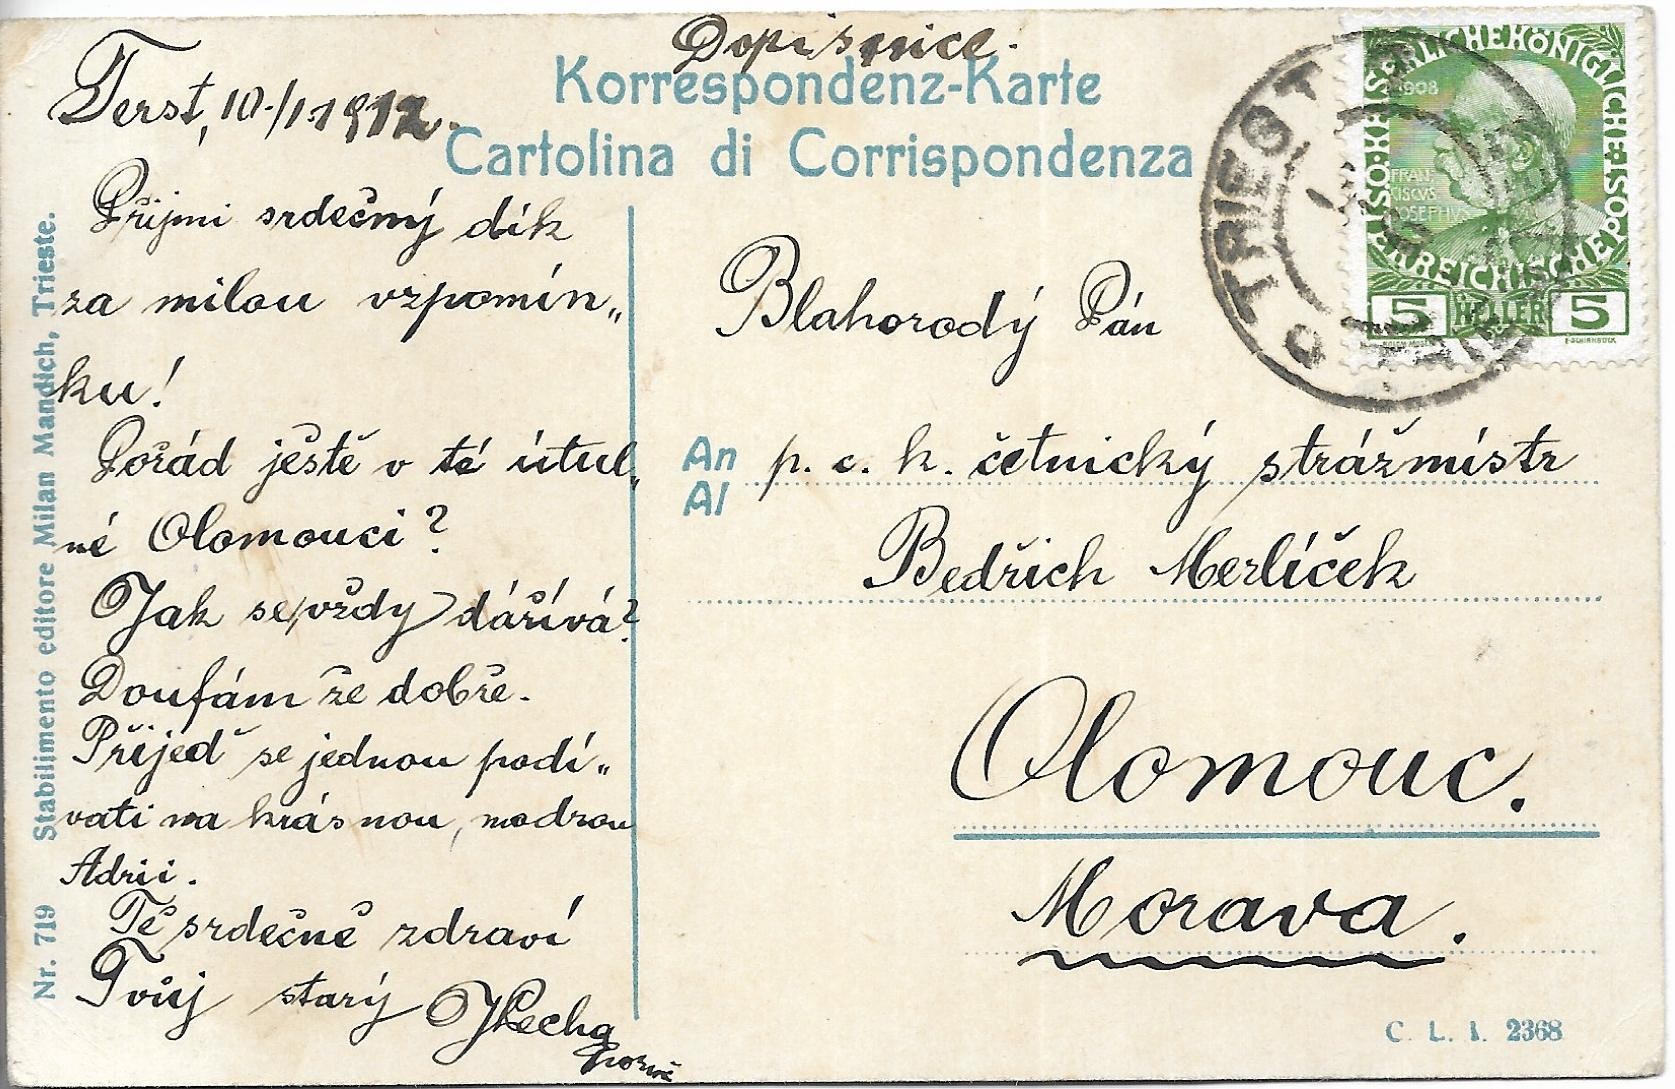 Dopisnice.
Korrespondenz-Karte
Cartolina di Corrispondenza
Terst, 10./1. 1912.
Přijmi srdečný dík
za milou vzpomín„
ku!
Pořád ještě v té útul„
né Olomouci?
Jak se vždy dářívá?
Doufám že dobře.
Přijeď se jednou podí„
vati na krásnou, modrou
Adrii.
Tě srdečně zdraví
Tvůj starý
Blahorodý Pán
An
Al
p. c. k. četnický strážmistr
Bedřich Merlíček
Olomouc.
Morava.
Nr. 719 Stabilimento editore Milan Mandich, Trieste.
C. L. I. 2368
KAISERLICHE KÖNIGLICHE ÖSTERREICHISCHE POST
1908
FRAN
CISCVS
IOSEPHVS
5 HELLER 5
TRIEST